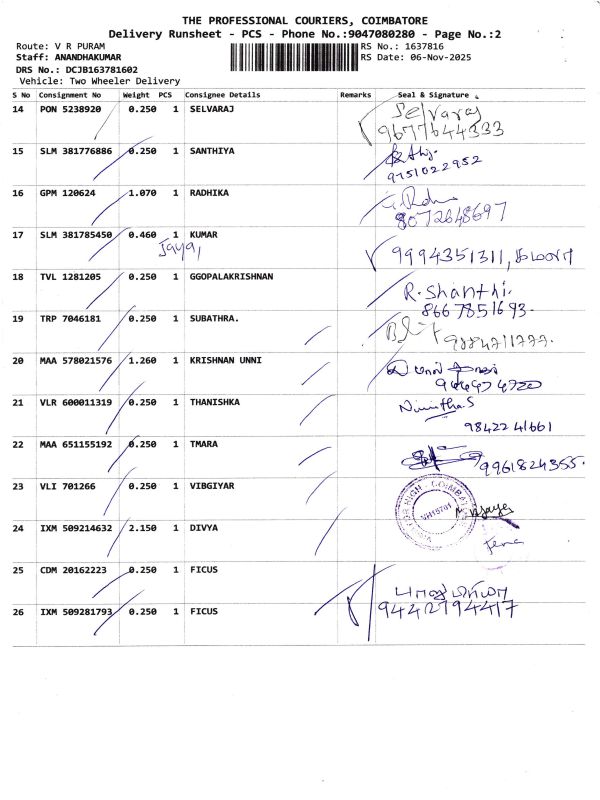 THE PROFESSIONAL COURIERS, COIMBATORE
Delivery Runsheet - PCS - Phone No.:9047080280 - Page No.:2
Route: V R PURAM RS No.: 1637816
Staff: ANANDHAKUMAR RS Date: 06-Nov-2025
DRS No.: DCJB163781602
Vehicle: Two Wheeler Delivery
S No Consignment No Weight PCS Consignee Details Remarks Seal & Signature
14 PON 5238920 0.250 1 SELVARAJ Selvaraj
9677644333
15 SLM 381776886 0.250 1 SANTHIYA
9751022952
16 GPM 120624 1.070 1 RADHIKA
8072648697
17 SLM 381785450 0.460 1 KUMAR 9994351311, கமலா
18 TVL 1281205 0.250 1 GGOPALAKRISHNAN R. Shanthi.
8667851693.
19 TRP 7046181 0.250 1 SUBATHRA.
20 MAA 578021576 1.260 1 KRISHNAN UNNI
21 VLR 600011319 0.250 1 THANISHKA Nimitha S
98422 41661
22 MAA 651155192 0.250 1 TMARA 9961824355.
23 VLI 701266 0.250 1 VIBGIYAR
24 IXM 509214632 2.150 1 DIVYA
25 CDM 20162223 0.250 1 FICUS
26 IXM 509281793 0.250 1 FICUS 9442794417